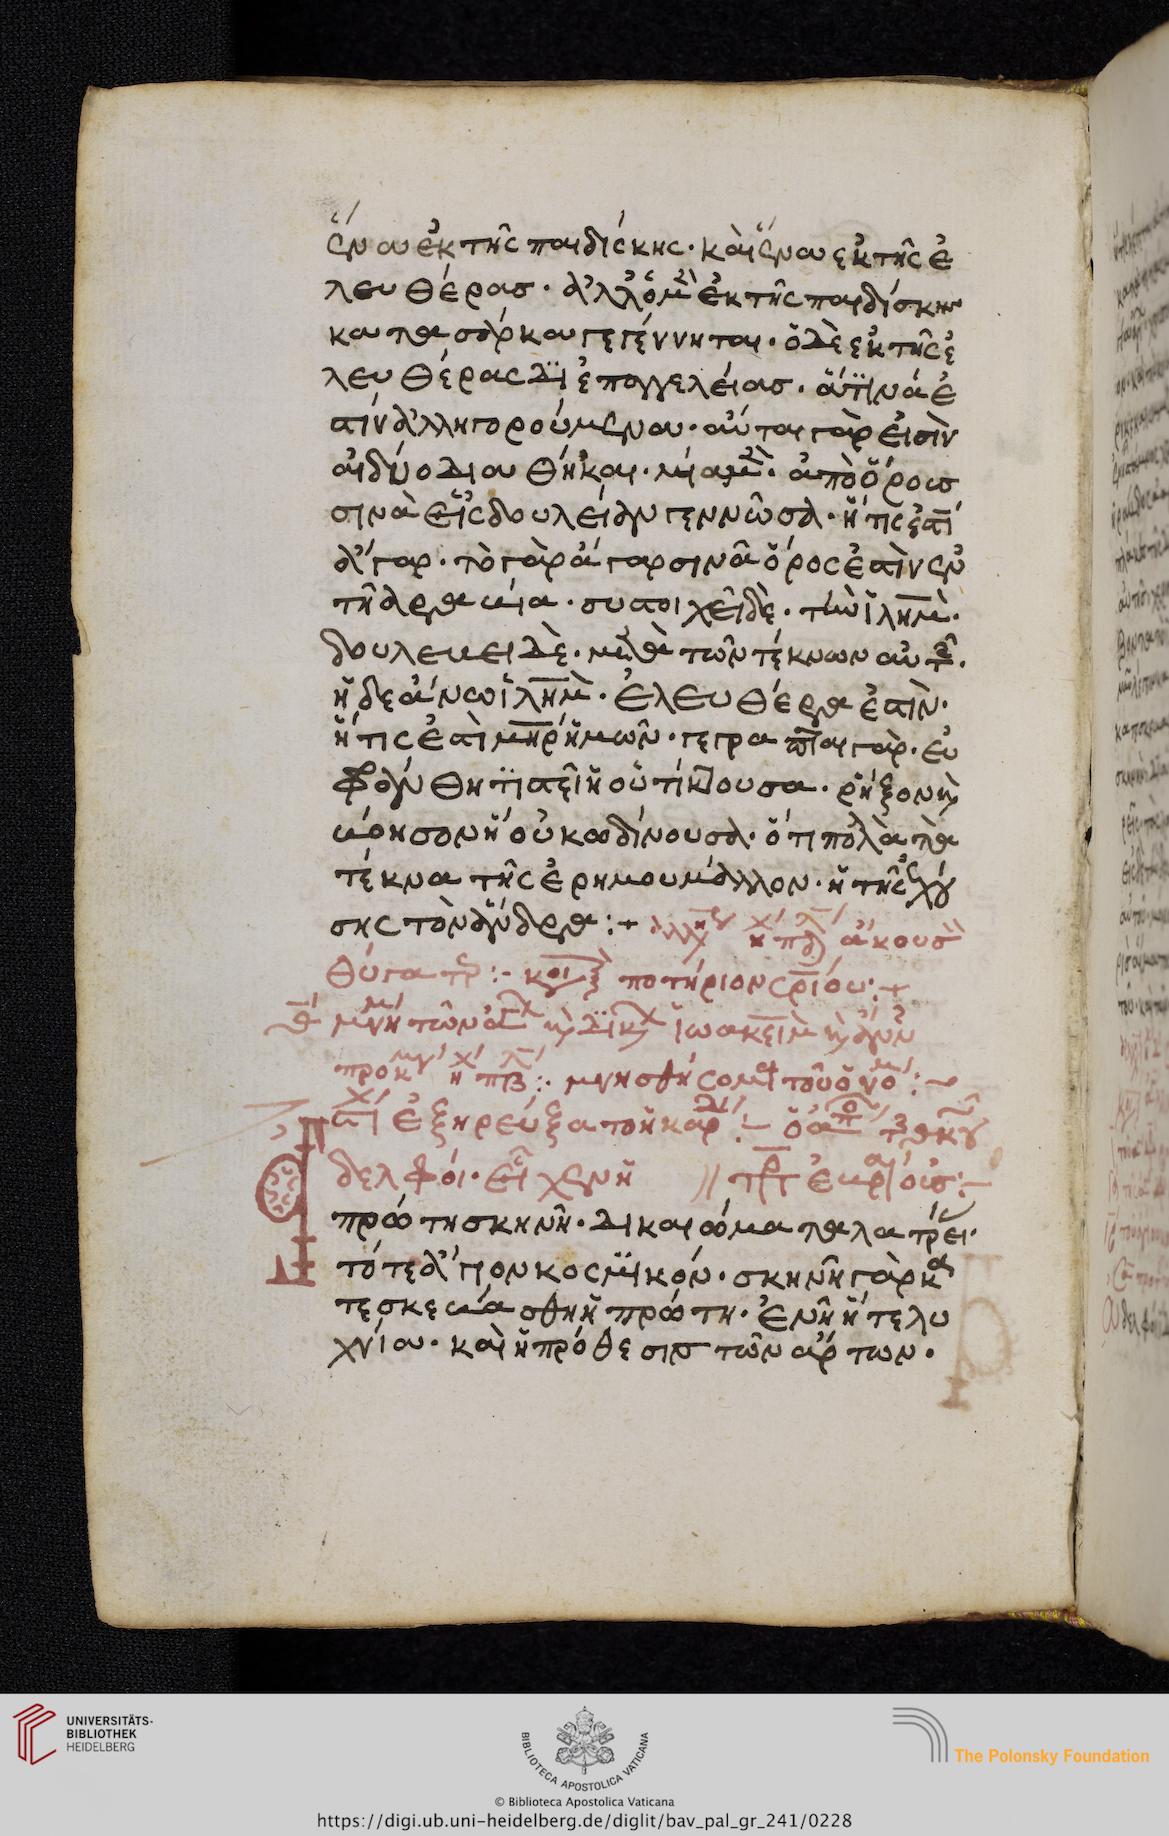 ἕνα ἐκ τῆς παιδίσκης· καὶ ἕνα ἐκ τῆς ἐ
λευθέρασ· ἀλλ' ὁ μὲν ἐκ τῆς παιδίσκης
κατὰ σάρκα γεγέννηται· ὁ δὲ ἐκ τῆς ἐ
λευθέρας διἐπαγγελείασ· ἅτϊνά ἐ
στίν ἀλληγορούμενα· αὗται γάρ εἰσὶν
αἱ δύο διαθῆκαι· μία μὲν· ἀπὸ ὄρους
σινὰ εἰς δουλείαν γεννῶσα· ἥτις ἐστὶ
ἄγαρ· τὸ γὰρ ἄγαρ σινᾶ ὄρος ἐστὶν ἐν
τῆ ἀραβία· συστοιχεῖ δὲ· τῶ ϊλημ·
δουλευει δὲ· μετὰ τῶν τέκνων αὐτῆς·
ἡ δε ἄνω ϊλημ· ἐλευθέρα ἐστὶν·
ἥτις ἐστὶ μηρ ἡμῶν· γέγραπται γὰρ· εὐ
φράνθητϊ στεῖ ἡ οὐ τίκτουσα· ῥῆξον καὶ
βόησον ἡ οὐκ ωδίνουσα· ὅτι πολὰ τὰ
τέκνα τῆς ἐρήμου μᾶλλον· ἢ τῆς ἐχού
σης τὸν ἄνδρα:+ ἀλλ ἠχ πλ ἄκουσ
θύγατρ:- κοι ποτήριον σριου:+
θ μνή τῶν ἁγ καὶ δικ ἰωακεὶμ καὶ ἄνν
προκ ἠχ πβ:· μνησθήσομαι τοῦ ὀνό:~
στι ἐξηρεύξατο ἡ καρ:- ὁ ἀπ
δελφοί· εἶ χεν ἡ // πρ ἑβραίοις:-
πρώτη σκηνὴ· δικαιώματα λατρεί·
τό τε ἅγιον κοσμϊκόν· σκηνὴ γὰρ κα
τεσκευάσθη ἡ πρώτη· ἐν ἧ ἥ τε λυ
χνία· καὶ ἡ πρόθεσισ τῶν ἄρτων·
UNIVERSITÄTS-
BIBLIOTHEK
HEIDELBERG
BIBLIOTECA APOSTOLICA VATICANA
The Polonsky Foundation
© Biblioteca Apostolica Vaticana
https://digi.ub.uni-heidelberg.de/diglit/bav_pal_gr_241/0228